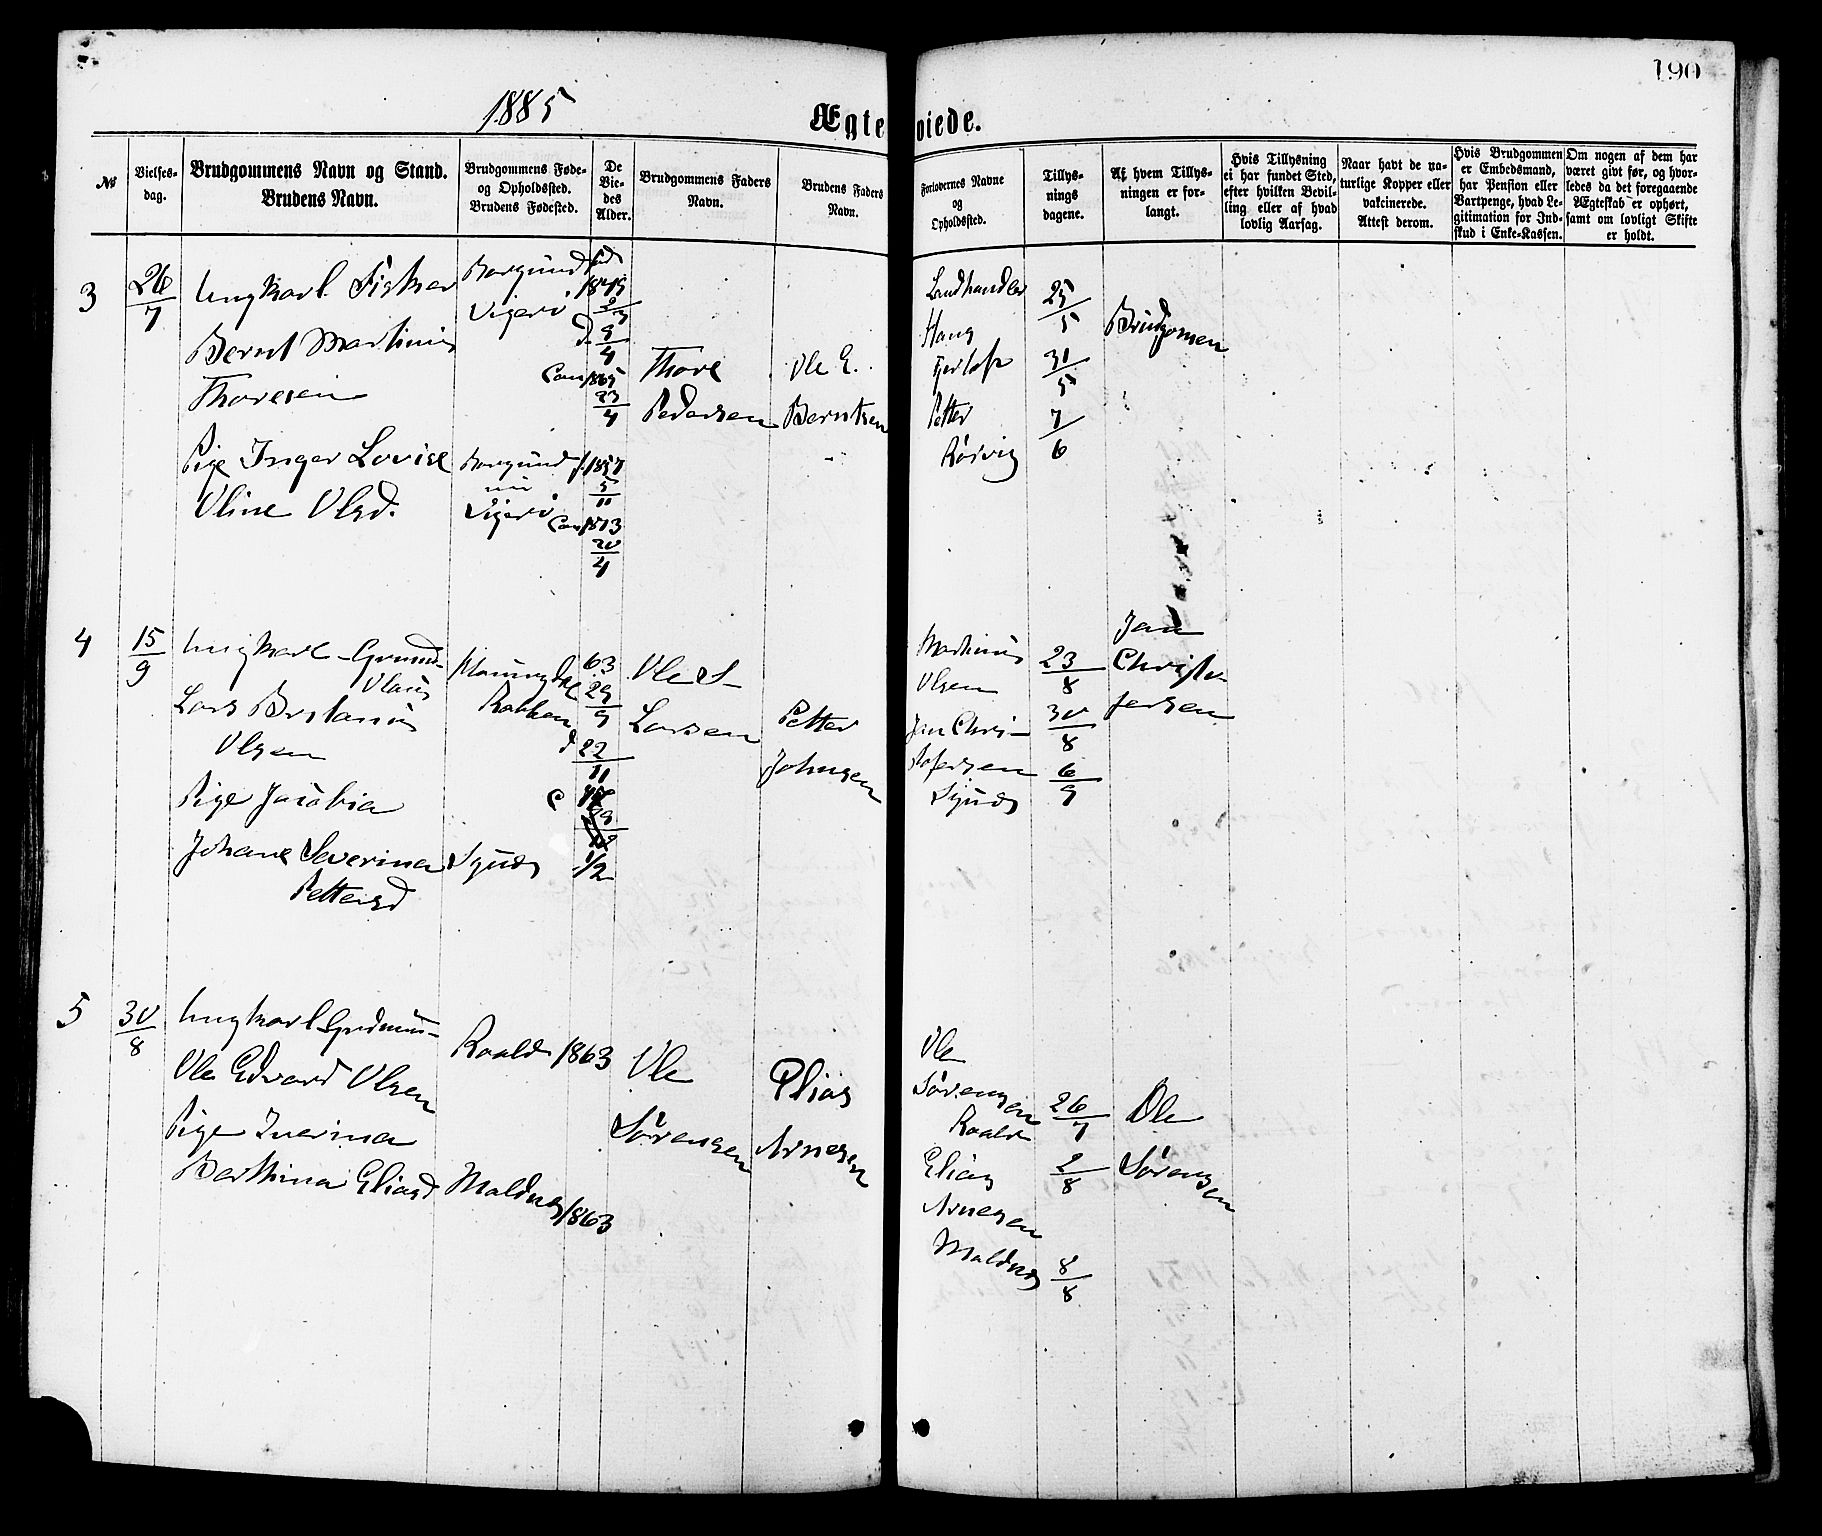 190
1885
Ægteviede.
№
Vielses-
dag.
Brudgommens Navn og Stand.
Brudens Navn.
Brudgommens Føde-
og Opholdssted.
Brudens Fødested.
De
Vie-
des
Alder.
Brudgommens Faders
Navn.
Brudens Faders
Navn.
Forlovernes Navne
og
Opholdssted.
Tillys-
nings
dagene.
Af hvem Tillys-
ningen er for-
langt.
Hvis Tillysning
ei har fundet Sted,
efter hvilken Bevil-
ling eller af hvad
lovlig Aarsag.
Naar havt de na-
turlige Kopper eller
vakcinerede.
Attest derom.
Hvis Brudgommen
er Embedsmand,
har Pension eller
Vartpenge, hvad Le-
gitimation for Ind-
skud i Enke-Kassen.
Om nogen af dem har
været givt før, og hvor-
ledes da det foregaaende
Ægteskab er ophørt,
samt om lovligt Skifte
er holdt.
3
26/7
Ungkarl Fisker
Bernt Martinus
Thoresen
Pige Inger Lovise
Oline Olsd.
Borgund
Vigerö
Borgund
Vigerö
2/3
d 9/4
23/4
f. 1857
5/11
Conf 1873
20/4
Thore
Pedersen
Ole E.
Berntsen
Landhandler
Hans
Petter
Rörvig
25/5
31/5
7/6
Brudgomen
4
15/9
Ungkarl
Lars
Olsen
Pige Jacobia
Johane Severina
Pettersd
Rabben
63
29/9
d 22/11
c
1/2
Ole
Larsen
Petter
Johnsen
Martinus
Olsen
Jan Chri-
stofersen
23/8
30/8
6/9
Jan
Christo-
fersen
5
30/8
Ungkarl
Ole Edvard Olsen
Pige
Barthina Eliasd
Roald 1863
Maldnes 1863
Ole
Sörensen
Elias
Arnesen
Ole
Sörensen
Roald
Elias
Arnesen
Maldnes
26/7
2/8
8/8
Ole
Sörensen